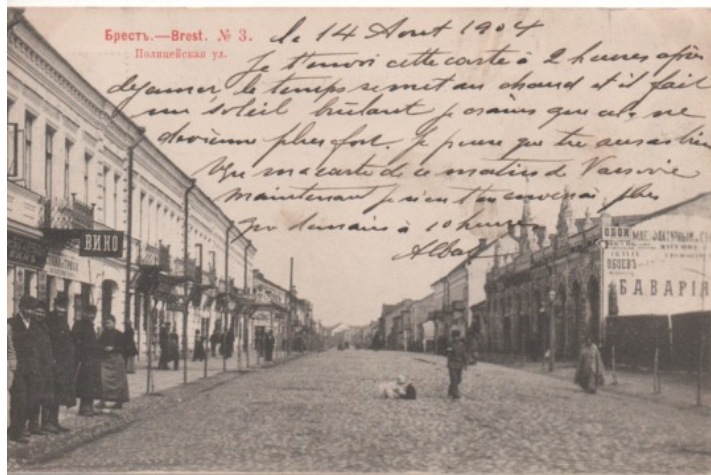 Брестъ.—Brest. № 3.
Полицейская ул.
le 14 Aout 1904
Je t'envoi cette carte à 2 heures après
dejeuner, le temps se met au chaud et il fait
un soleil brûlant je crains que cela ne
devienne plus fort. Je pense que tu auras bien
ma carte de ce matin de Varsovie
maintenant je n'en t'enverrai plus
que demain à 10 heures
ВИНО
ОБОИ
ОБОЕВЪ
БАВАРІЯ